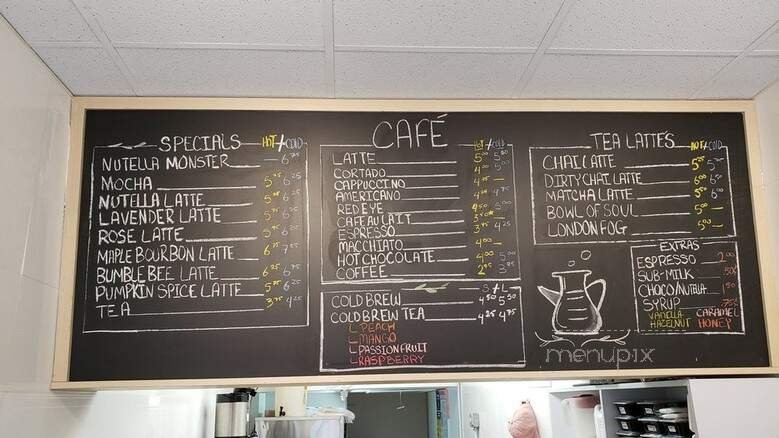 SPECIALS HOT + COLD
NUTELLA MONSTER — 6.75
MOCHA 5.75 6.25
NUTELLA LATTE 5.75 6.25
LAVENDER LATTE 5.75 6.25
ROSE LATTE 5.75 6.25
MAPLE BOURBON LATTE 6.75 7.25
BUMBLE BEE LATTE 6.25 6.75
PUMPKIN SPICE LATTE 5.75 6.25
TEA 3.75 4.25
CAFÉ
HOT + COLD
LATTE
CORTADO
CAPPUCCINO
AMERICANO
RED EYE
CAFE AU LAIT
ESPRESSO
MACCHIATO 4.00 —
HOT CHOCOLATE
COFFEE
S + L
COLD BREW 4.50 5.50
COLD BREW TEA 4.25 4.75
PEACH
MANGO
PASSIONFRUIT
RASPBERRY
TEA LATTE'S HOT + COLD
CHAI LATTE
DIRTY CHAI LATTE
MATCHA LATTE
BOWL OF SOUL 5.00 —
LONDON FOG 5.00 —
EXTRAS
ESPRESSO 2.00
SUB-MILK .50
CHOCO/NUTELLA 1.50
SYRUP .75
VANILLA CARAMEL
HAZELNUT HONEY
menupix